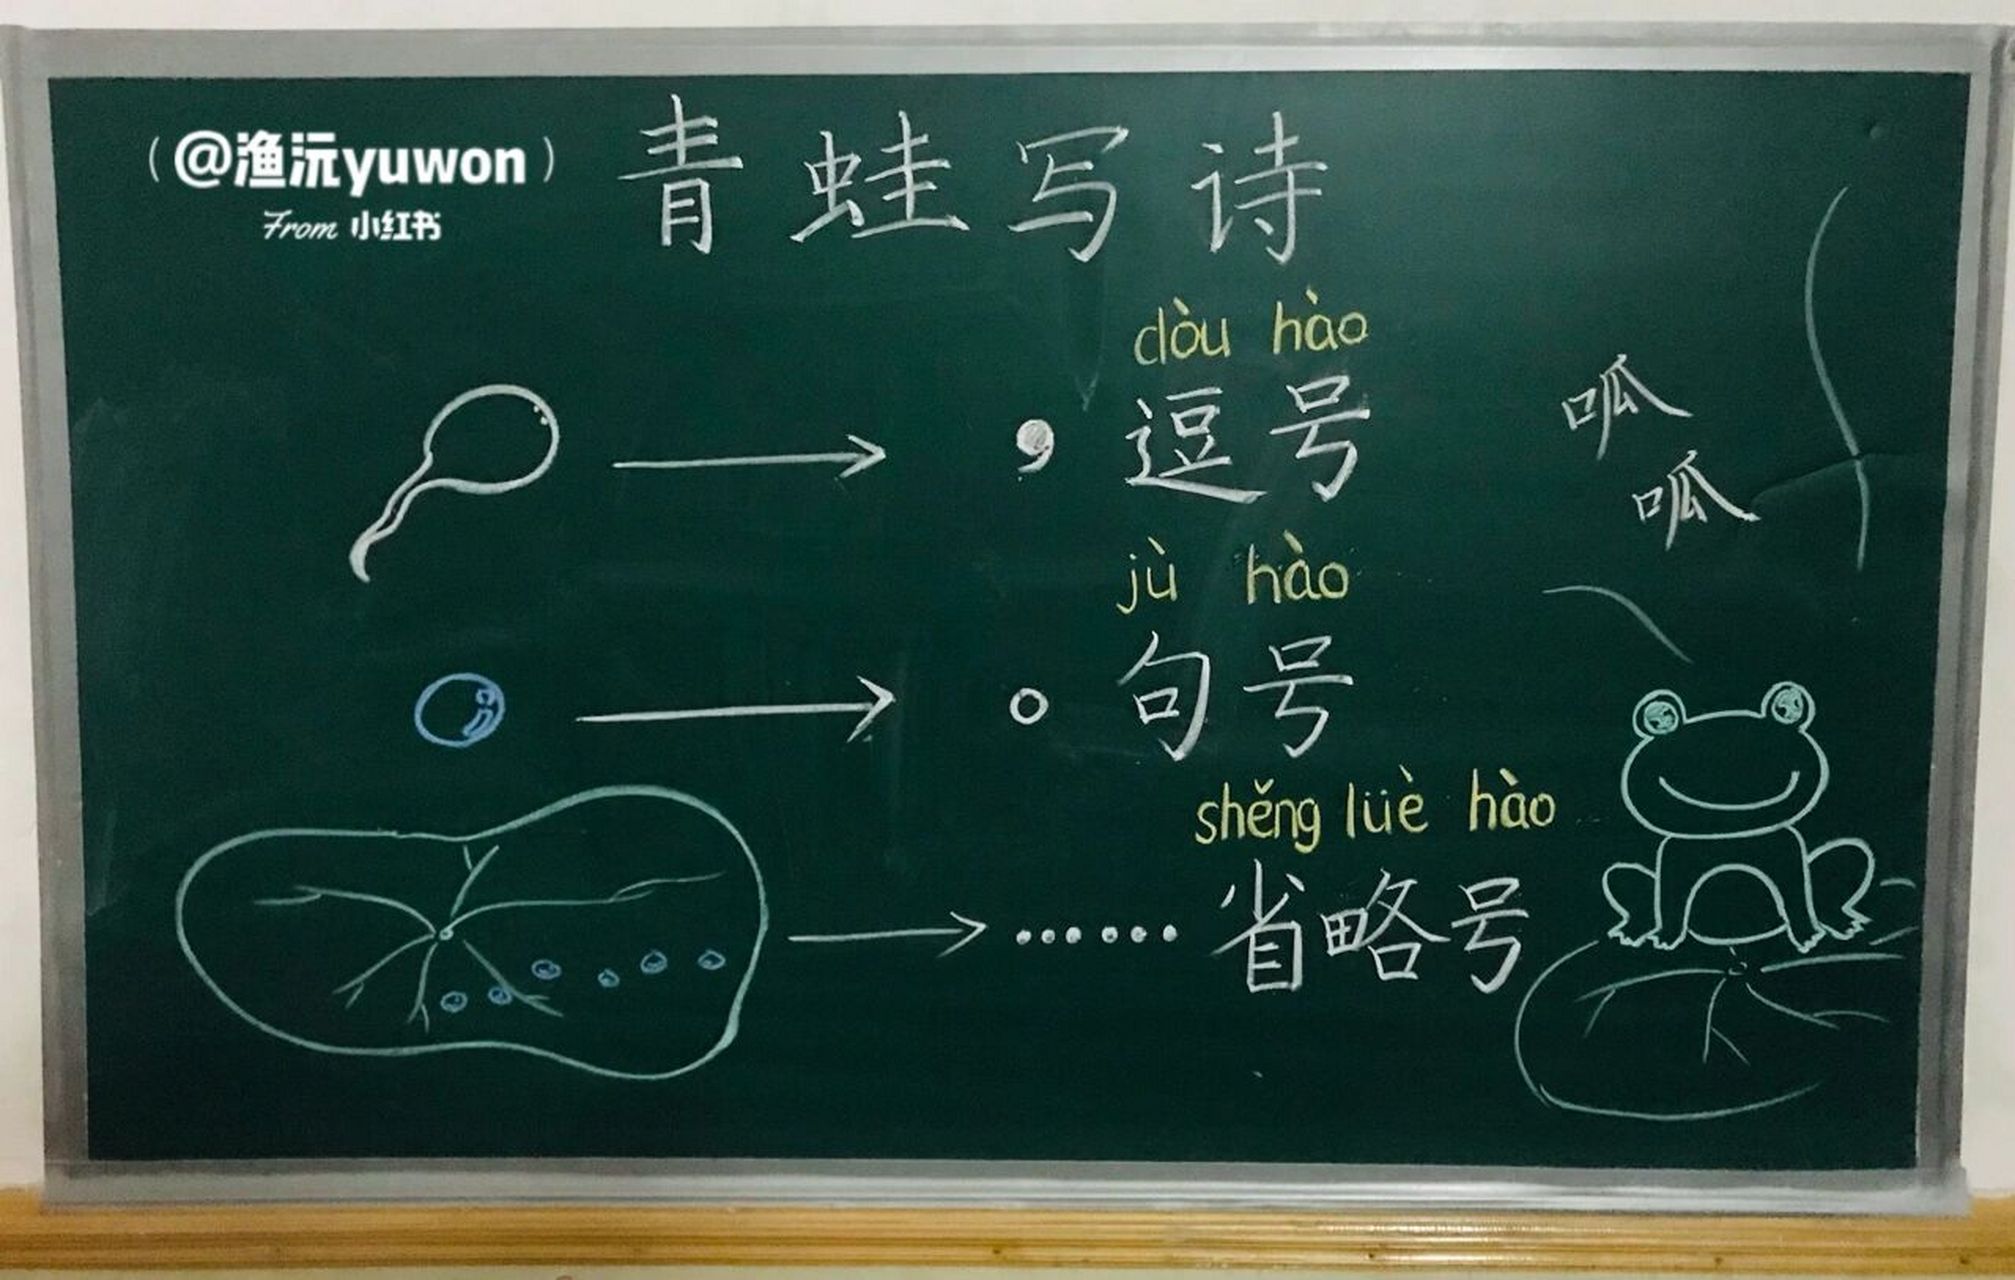 (@渔沅yuwon)
From 小红书
青蛙写诗
dòu hào
，逗号
呱
呱
jù hào
。句号
shěng lüè hào
……省略号